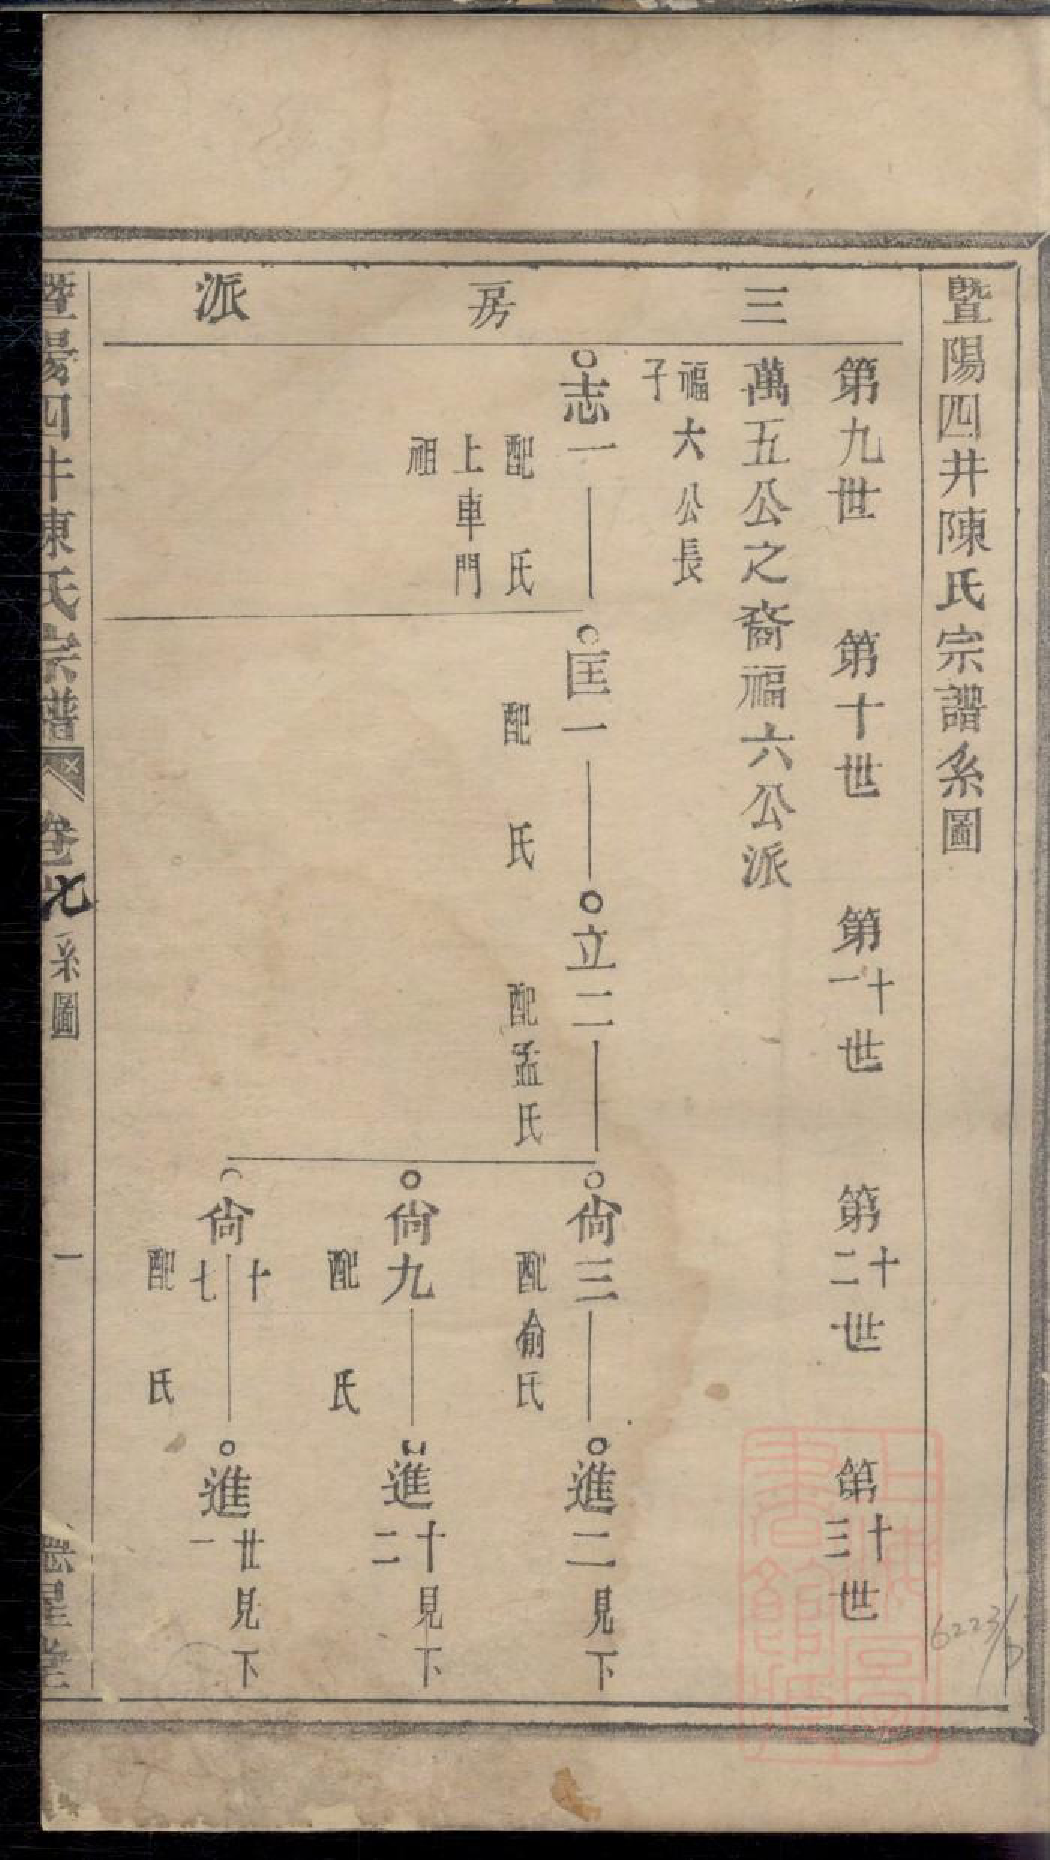 暨陽四井陳氏宗譜系圖
三房派
第九世 第十世 第十一世 第十二世 第十三世
萬五公之裔福六公派
福六公長子
志一
配 氏
上車門祖
匡一
配 氏
立二
配孟氏
尙三
配俞氏
進二見下
尙九
配 氏
進十二見下
尙十七
配 氏
進廿一見下
暨陽四井陳氏宗譜 卷七 系圖 一
6223/